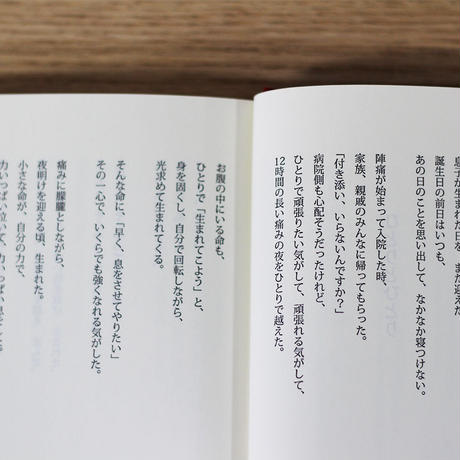 息子が生まれた日を、また迎えた
誕生日の前日はいつも、
あの日のことを思い出して、なかなか寝つけない。
陣痛が始まって入院した時、
家族、親戚のみんなに帰ってもらった。
「付き添い、いらないんですか？」
病院側も心配そうだったけれど、
ひとりで頑張りたい気がして、頑張れる気がして、
12時間の長い痛みの夜をひとりで越えた。
お腹の中にいる命も、
ひとりで「生まれてこよう」と、
身を固くし、自分で回転しながら、
光求めて生まれてくる。
そんな命に、「早く、息をさせてやりたい」
その一心で、いくらでも強くなれる気がした。
痛みに朦朧としながら、
夜明けを迎える頃、生まれた。
小さな命が、自分の力で、
力いっぱい泣いて、力いっぱい息をした。